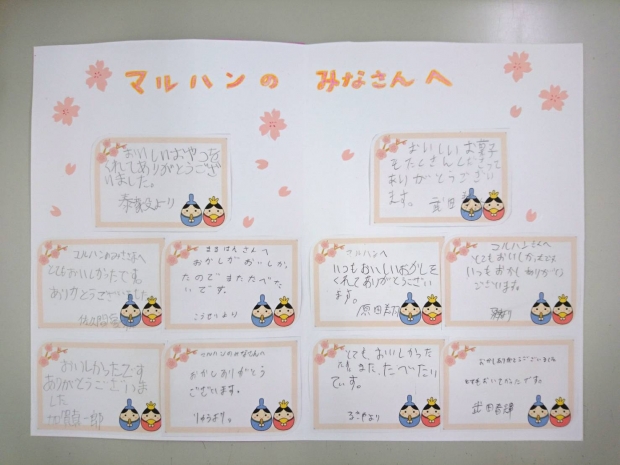 マルハンの みなさんへ
おいしいおやつを
くれてありがとうござ
いました。
より
おいしいお菓子
をたくさんくださって
ありがとうござい
ます。
マルハンのみなさまへ
とてもおいしかったです。
ありがとうございました
まるはんさんへ
おかしがおいしかっ
たのでまたたべた
いです。
こうせいより
マルハンへ
いつもおいしいおかしを
くれてありがとうござい
ます。
マルハンさんへ
とてもおいしかったです
いつもおかしありがとう
ございます。
おいしかったです
ありがとうございま
した
マルハンのみなさんへ
おかしありがとう
ございます。
とても、おいしかった
です。また、たべたい
です。
より
おかしありがとうございました
とてもおいしかったです。